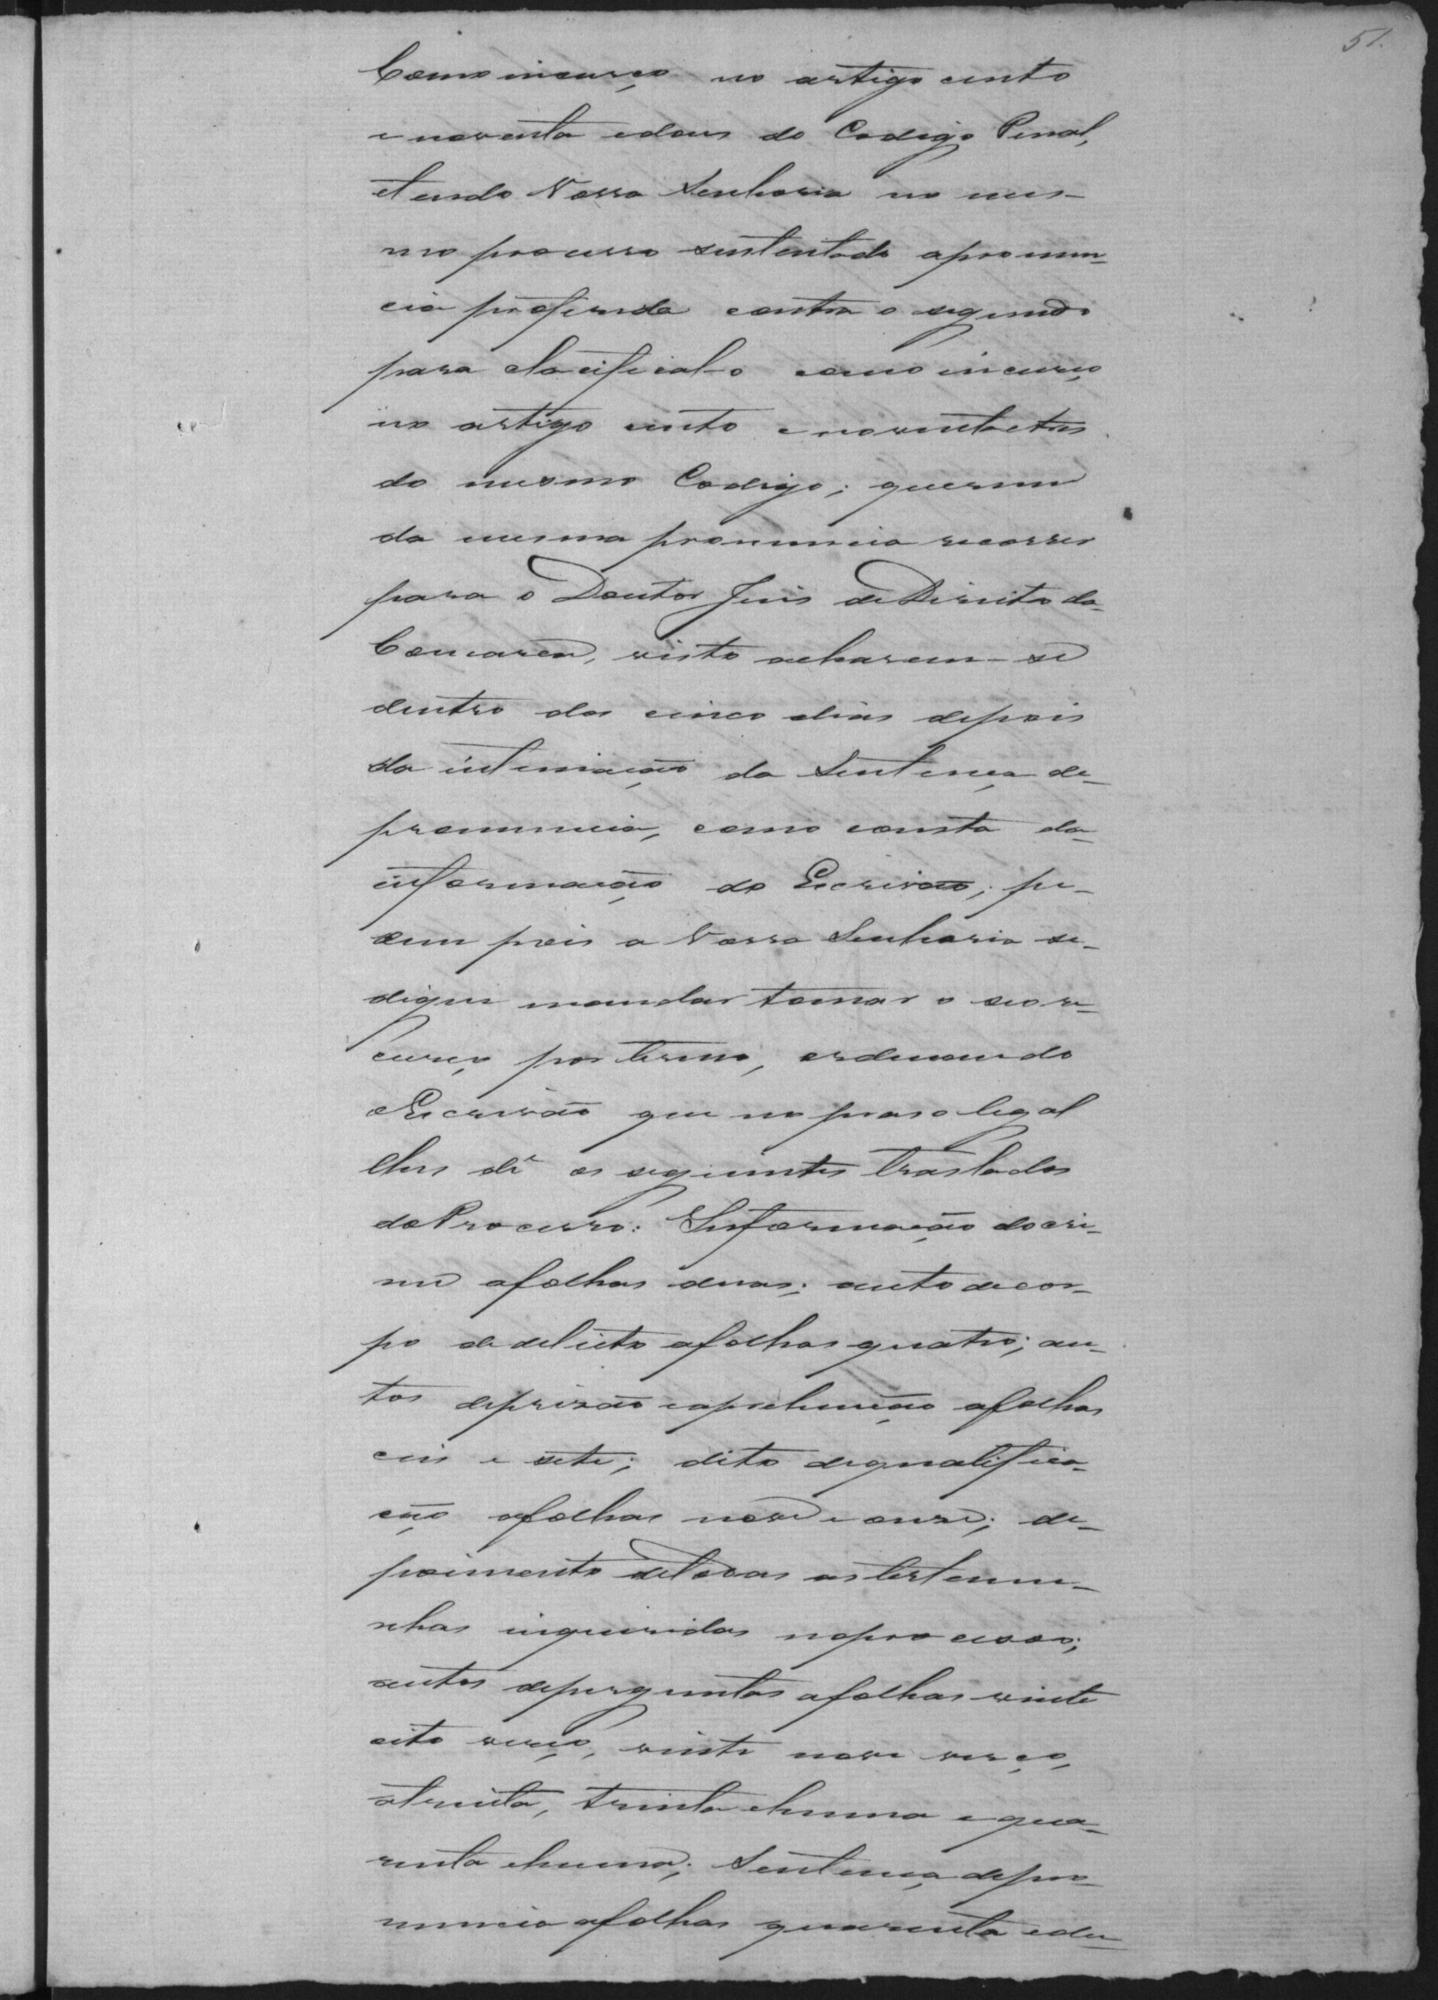 51.
Como incurço no artigo cento
e noventa e dous do Codigo Penal,
e tendo Vossa Senhoria no mes-
mo processo sustentado a pronun-
cia proferida contra o segundo
para clacifical-o como incurço
no artigo cento e noventa e tres
do mesmo Codigo; querem
da mesma pronuncia recorrer
para o Doutor Juis de Direito da
Comarca, visto acharem-se
dentro dos cinco dias depois
da intimação da Sentença de
pronuncia, como consta da
informação do Escrivão; pe-
dem pois a Vossa Senhoria se
digne mandar tomar o seo re-
curço por termo, ordenando
o Escrivão que no praso legal
lhes dê os seguintes traslados
do Processo: Informação do cri-
me a folhas duas; auto de cor-
po de delicto a folhas quatro; au-
tos de prizão e aprehenção a folhas
ceis e sete; dito de qualifica-
ção a folhas nove e onze; de-
poimento de todas as testemu-
nhas inqueridas no processo;
autos de perguntas a folhas vinte
oito verço, vinte nove verço,
trinta, trinta e huma e qua-
renta e huma; Sentença de pro-
nuncia a folhas quarenta e du-